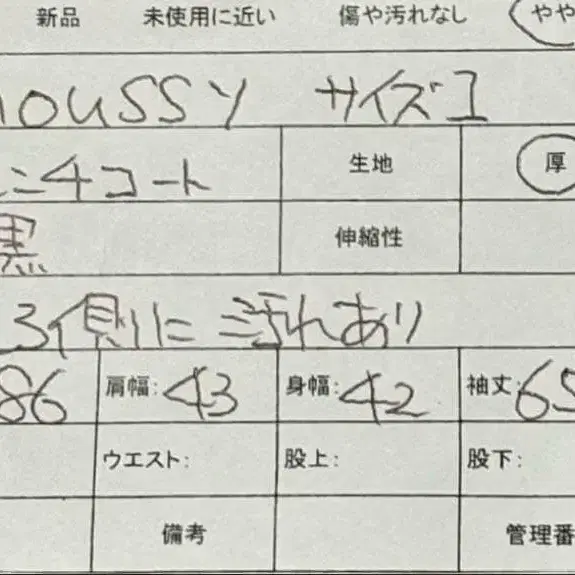 新品 未使用に近い 傷や汚れなし やや
moussy サイズ1
コート 生地 厚
黒 伸縮性
側に汚れあり
86 肩幅:43 身幅:42 袖丈:65
ウエスト: 股上: 股下:
備考 管理番